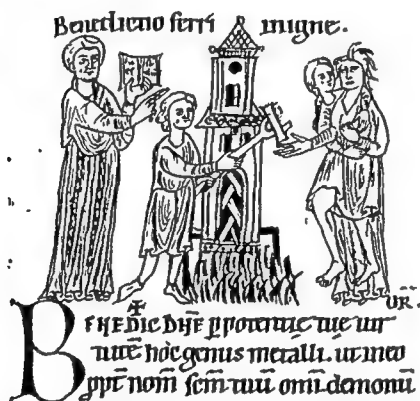 Benedictio ferri in igne.
OR̄.
BENEDIC DÑE p potentie tue uir
tutē hoc genus metalli. ut in eo
ppt nom̄ scm̄ tuū omī demonū